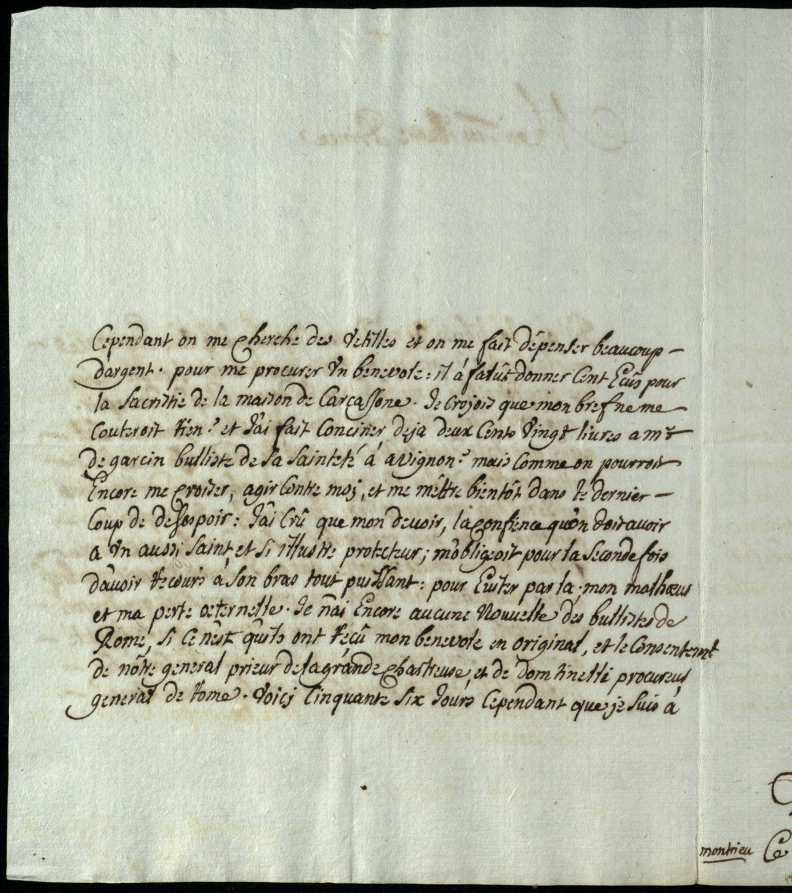 Cependant on me cherche des vetilles et on me fait dépenser beaucoup
dargent. pour me procurer Vn benevole: il à falût donner Cent Ecus pour
la Sacristie de la maison de Carcassone. Je Crojois que mon bref ne me
Couteroit Rien. et J'ai fait Conciner deja deux Cents Vingt livres a mr
de garcin bulliste de Sa Sainteté à avignon. mais Comme on pourroit
Encore me croiser, agir Contre moj, et me méttre bientôt dans le dernier
Coup de desespoir: J'ai Crû que mon devoir, la confience qu'on doit avoir
a Vn aussi Saint et Si illustre protecteur; m'obligeoit pour la Seconde fois
d'avoir recours à Son bras tout puissant: pour Eviter par la mon malhœur
et ma perte œternelle. Je n'ai Encore aucune Nouvelle des bullistes de
Rome, Si Ce n'est qu'ils ont reçû mon benevole en original, et le Consentemt
de nôtre general prieur de la grande Chartreuse, et de Dom Tinelli procureur
general de rome. Voicj Cinquante Six Jours Cependant que je Suis à
montrieu Ce